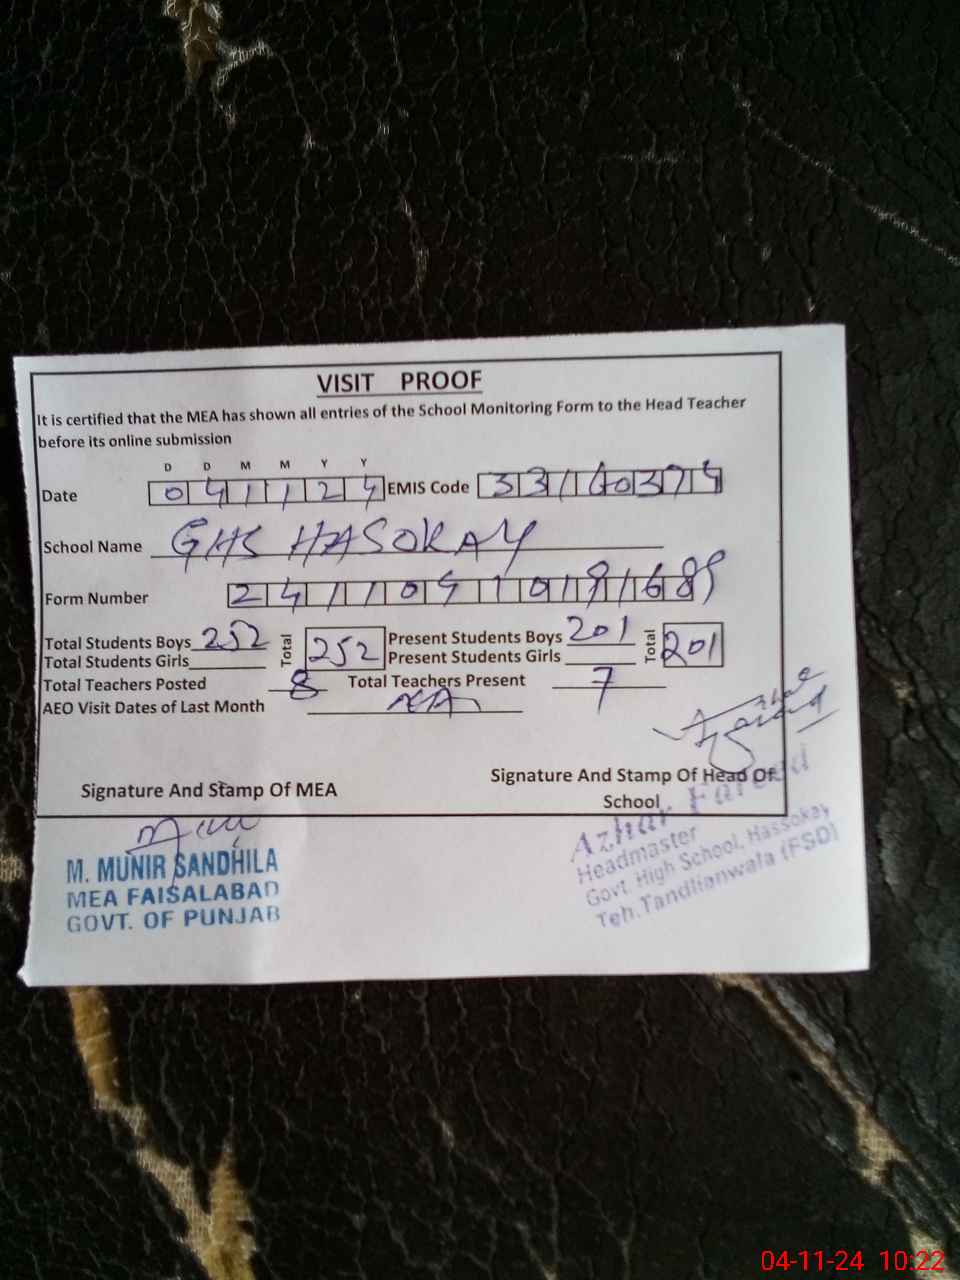 VISIT PROOF
It is certified that the MEA has shown all entries of the School Monitoring Form to the Head Teacher
before its online submission
D D M M Y Y
Date 041124 EMIS Code 33140374
School Name GHS HASOKAY
Form Number
Total Students Boys 252 Total 252 Present Students Boys 201 Total 201
Total Students Girls Present Students Girls
Total Teachers Posted 8 Total Teachers Present 7
AEO Visit Dates of Last Month
Signature And Stamp Of MEA
Signature And Stamp Of Head Of
School
M. MUNIR SANDHILA
MEA FAISALABAD
GOVT. OF PUNJAB
Azhar Fareed
Headmaster
Govt. High School, Hassokay
Teh.Tandlianwala (FSD)
04-11-24 10:22